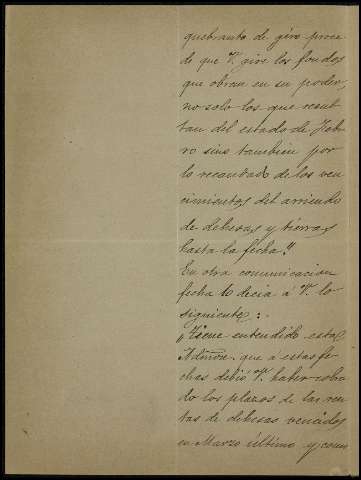 quebranto de giro proce
de que V. gire los fondos
que obran en su poder,
no solo los que resul
tan del estado de Febre
ro sino tambien por
lo recaudado de los ven
cimientos del arriendo
de dehesas y tierras
hasta la fecha."
En otra comunicacion
fecha 6 decia á V. lo
siguiente:
"Tiene entendido esta
Admon. que á estas fe
chas debió V. haber cobra
do los plazos de las ren
tas de dehesas vencidos
en Marzo último y, como